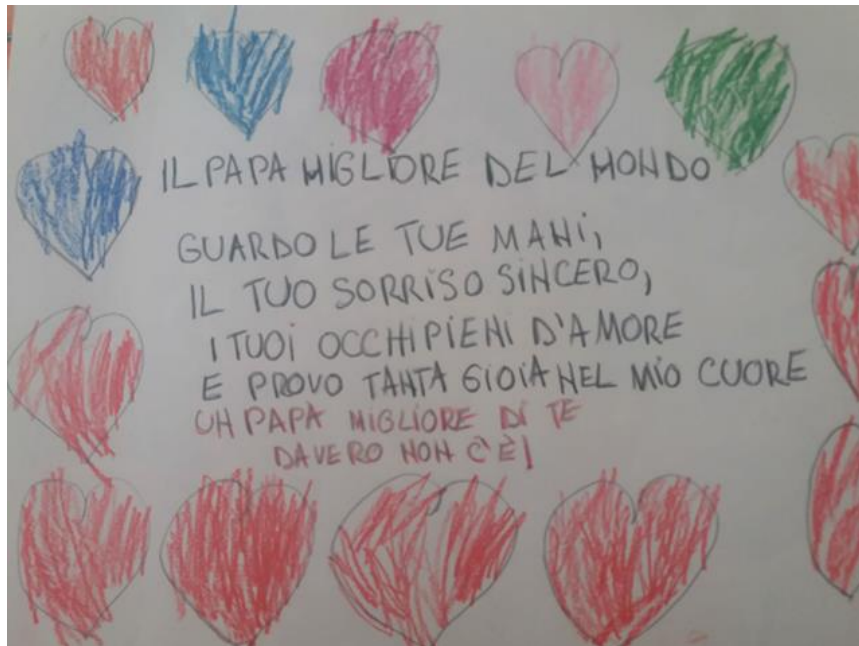 IL PAPA MIGLIORE DEL MONDO
GUARDO LE TUE MANI,
IL TUO SORRISO SINCERO,
I TUOI OCCHI PIENI D'AMORE
E PROVO TANTA GIOIA NEL MIO CUORE
UN PAPA MIGLIORE DI TE
DAVERO NON C'È!